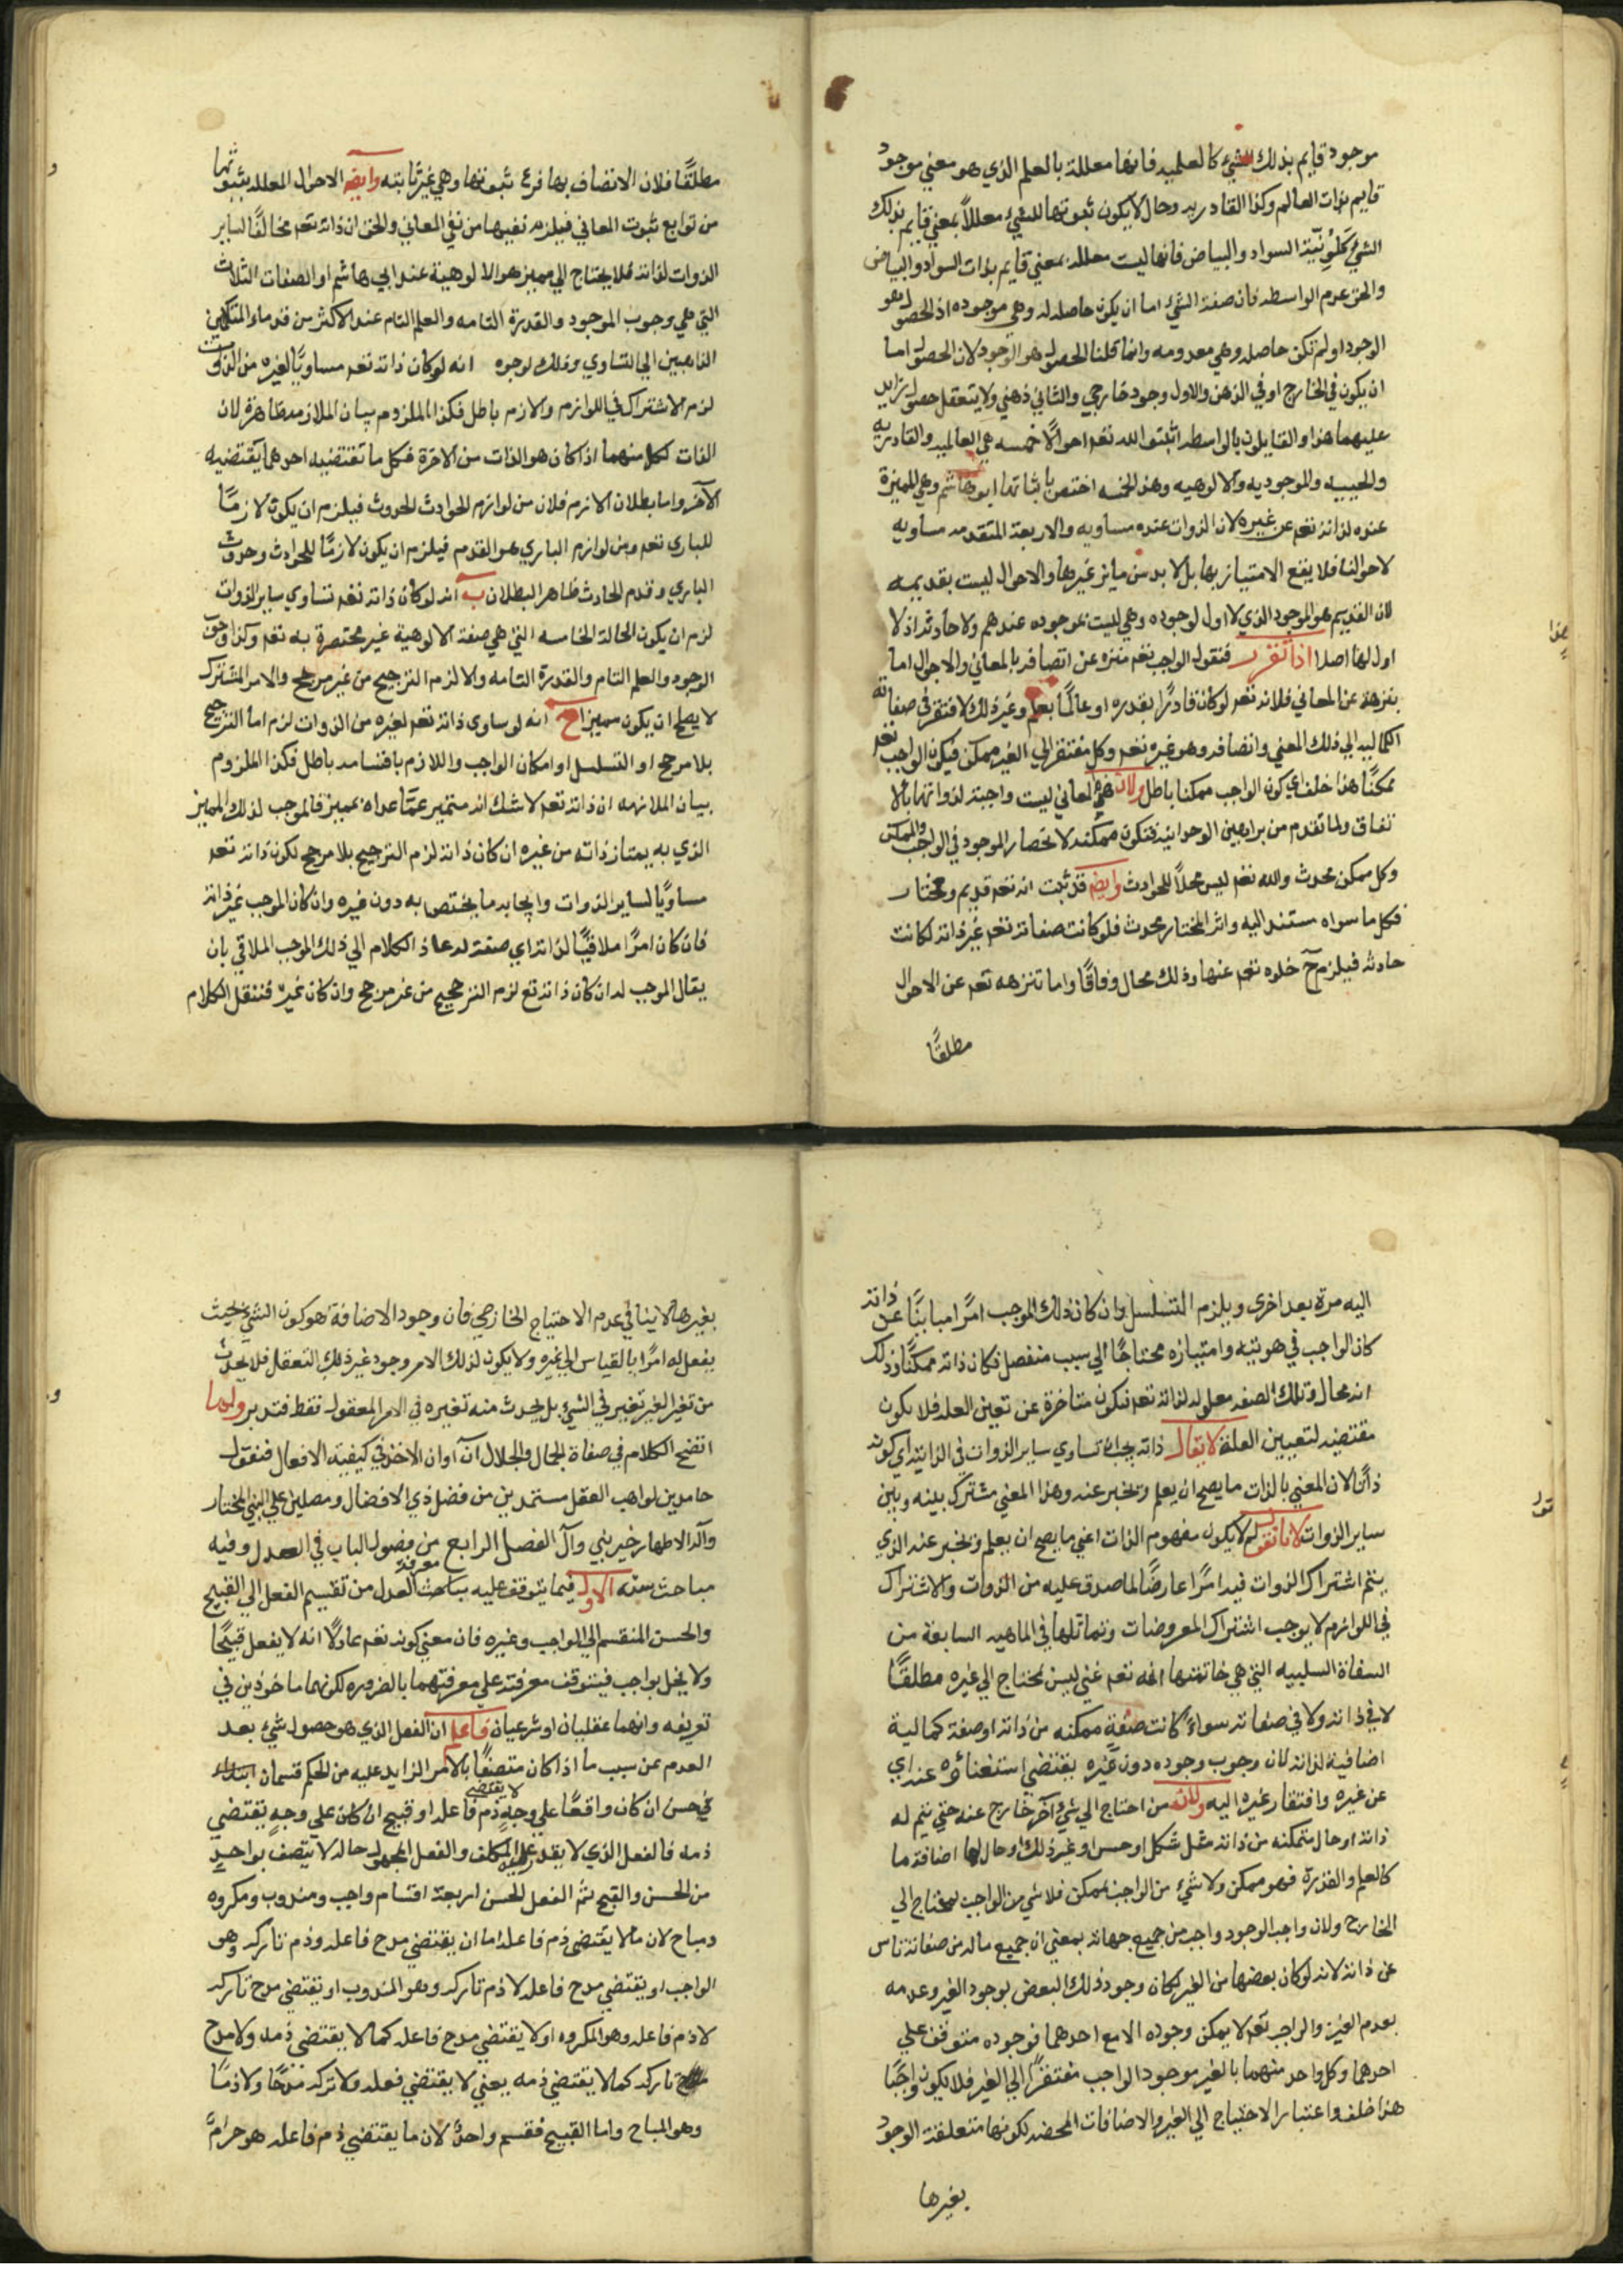 موجود قايم بذلك الشيء كالعلميه فانها معللة بالعلم الذي هو معني موجود
قايم بذات العالم وكذا القادريه وحال لا يكون ثبوتها للشيء معللاً بمعني قايم بذلك
الشيء كلونية السواد والبياض فانها ليست معلله بمعني قايم بذات السواد والبياض
والحق عدم الواسطه فان صفة الشيء اما ان يكون حاصله له وهي موجوده اذ الحصول هو
الوجود او لم تكن حاصله وهي معدومه وانما قلنا الحصول هو الوجود لان الحصول اما
ان يكون في الخارج او في الذهن والاول وجود خارجي والثاني ذهني ولا يتعقل حصول زايد
عليهما هذا والقايلون بالواسطه اثبتوا لله تعم احوالًا خمسه هي العالميه والقادريه
والحييه والموجوديه والالوهيه وهذه الخمسه اختص باثباتها ابو هاشم وهي المميزة
عنده لذاته تعم عن غيره لان الذوات عنده مساويه والاربعة المتقدمه مساويه
لاحوالنا فلا يقع الامتياز بها بل لا بد من مايز غيرها والاحوال ليست بقديمه
لان القديم هو الموجود الذي لا اول لوجوده وهي ليست بموجوده عندهم ولا حادثه اذ لا
اول لها اصلا اذا تقرر فنقول الواجب تعم منزه عن اتصافه بالمعاني والاحوال اما
تنزهه عن المعاني فلانه تعم لو كان قادرًا بقدره او عالمًا بعلم وغير ذلك لافتقر في صفاته
الكماليه الي ذلك المعني واتصافه وهو غيره تعم وكل مفتقر الي الغير ممكن فيكون الواجب تعم
ممكنًا هذا خلف اي كون الواجب ممكنا باطل ولان هذه المعاني ليست واجبة لذواتها بالا
تفاق ولما تقدم من براهين الوحدانيه فتكون ممكنه لانحصار الموجود في الواجب والممكن
وكل ممكن محدث والله تعم ليس محلًا للحوادث وايضه قد ثبت انه تعم قديم ومختار
فكل ما سواه مستند اليه واثر المختار محدث فلو كانت صفاته تعم غير ذاته لكانت
حادثه فيلزم ح خلوه تعم عنها وذلك محال وفاقًا واما تنزهه تعم عن الاحوال
مطلقًا
مطلقًا فلان الاتصاف بها فرع ثبوتها وهي غير ثابته وايضه الاحوال المعلله بثبوتها
من توابع ثبوت المعاني فيلزم نفيها من نفي المعاني والحق ان ذاته تعم مخالفًا لساير
الذوات لذاته فلا يحتاج الي مميز هو الالوهية عند ابي هاشم او الصفات الثلاث
التي هي وجوب الموجود والقدرة التامه والعلم التام عند الاكثر من قدماء المتكلمين
الذاهبين الي التساوي وذلك لوجوه انه لو كان ذاته تعم مساويًا لغيره من الذوات
لزم الاشتراك في اللوازم والازم باطل فكذا الملزوم بيان الملازمه ظاهرة لان
الذات لكل منهما اذا كان هو الذات من الاخرة فكل ما تقتضيه احدهما يقتضيه
الآخر واما بطلان الازم فلان من لوازم الحوادث الحدوث فيلزم ان يكون لازمًا
للباري تعم ومن لوازم الباري هو القدم فيلزم ان يكون لازمًا للحوادث وحدوث
الباري وقدم الحادث ظاهر البطلان ب انه لو كان ذاته تعم تساوي ساير الذوات
لزم ان يكون الحالة الخامسه التي هي صفة الالوهية غير مختصة به تعم وكذا وجوب
الوجود والعلم التام والقدرة التامه والا لزم الترجيح من غير مرجح والامر المشترك
لا يصلح ان يكون مميزا ح انه لو ساوي ذاته تعم لغيره من الذوات لزم اما الترجيح
بلا مرجح او التسلسل او امكان الواجب واللازم باقسامه باطل فكذا الملزوم
بيان الملازمه ان ذاته تعم لا شك انه متميز عمّا عداه بمميز فالموجب لذلك المميز
الذي به يمتاز ذاته من غيره ان كان ذاته لزم الترجيح بلا مرجح لكون ذاته تعم
مساويًا لساير الذوات وايجابه ما يختص به دون غيره وان كان الموجب غير ذاته
فان كان امرًا ملاقيًا لذاته اي صفة له عاد الكلام الي ذلك الموجب الملاقي بان
يقال الموجب له ان كان ذاته تع لزم الترجيح من غير مرجح وان كان غيره فننقل الكلام
اليه مرة بعد اخري ويلزم التسلسل وان كان ذلك الموجب امرًا مباينًا عن ذاته
كان الواجب في هويته وامتيازه محتاجًا الي سبب منفصل فكان ذاته ممكنًا وذلك
انه محال وتلك الصفه معلوله لذاته تعم فتكون متاخرة عن تعين العله فلا يكون
مقتضيه لتعيين العلة لا يقال ذاته يجب ان تساوي ساير الذوات في الذاتيه اي كونه
ذاتًا لان المعني بالذات ما يصح ان يعلم ويخبر عنه وهذا المعني مشترك بينه وبين
ساير الذوات لانا نقول لم لا يكون مفهوم الذات اعني ما يصح ان يعلم ويخبر عنه الذي
يتم اشتراك الذوات فيه امرًا عارضًا لما صدق عليه من الذوات والاشتراك
في اللوازم لا يوجب اشتراك المعروضات وتماثلها في الماهيه السابعة من
السفاة السلبيه التي هي خاتمتها انه تعم غني ليس بمحتاج الي غيره مطلقًا
لا في ذاته ولا في صفاته سواءً كانت صفة ممكنه من ذاته او صفة كمالية
اضافية لذاته لان وجوب وجوده دون غيره يقتضي استغنائه عنه اي
عن غيره وافتقار غيره اليه ولانه من احتاج الي شيء آخر خارج عنه حتي يتم له
ذاته او حال متمكنه من ذاته مثل شكل او حسن او غير ذلك او حال لها اضافة ما
كالعلم والقدرة فهو ممكن ولا شيء من الواجب بممكن فلا شي من الواجب بمحتاج الي
الخارج ولان واجب الوجود واجب من جميع جهاته بمعني ان جميع ماله من صفاته ناس
عن ذاته لانه لو كان بعضها من الغير لكان وجود ذلك البعض بوجود الغير وعدمه
بعدم الغير والواجب تعم لا يمكن وجوده الا مع احدهما فوجوده متوقف علي
احدهما وكل واحد منهما بالغير موجود الواجب مفتقرًا الي الغير فلا يكون واجبًا
هذا خلف واعتبار الاحتياج الي الغير والاضافات المحضه لكونها متعلقة الوجود
بغيرها
بغيرها لا ينافي عدم الاحتياج الخارجي فان وجود الاضافة هو كون الشيء بحيث
يفعل له امرًا بالقياس الي غيره ولا يكون لذلك الامر وجود غير ذلك التعقل فلا يحدث
من تغير الغير تغير في الشيء بل يحدث منه تغيره في الامر المعقول فقط فتدبر ولما
اتضح الكلام في صفاة الجمال والجلال آن آوان الاخذ في كيفيه الافعال فنقول
حامدين لواهب العقل مستمدين من فضل ذي الافضال ومصلين علي النبي المختار
وآله الاطهار خير بني وآل الفصل الرابع من فصول الباب في العدل وفيه
مباحث سته الاول فيما يتوقف عليه معرفة مباحث العدل من تقسيم الفعل الي القبيح
والحسن المنقسم الي الواجب وغيره فان معني كونه تعم عادلًا انه لا يفعل قبيحًا
ولا يخل بواجب فيتوقف معرفته علي معرفتهما بالضروره لكونهما ماخوذين في
تعريفه وانهما عقليان او شرعيان فاعلم ان الفعل الذي هو حصول شيء بعد
العدم عن سبب ما اذا كان متصفًا بالامر الزايد عليه من الحكم قسمان ابتداء
في حسن ان كان واقعًا علي وجهٍ لا يقتضي ذم فاعله او قبيح ان كان علي وجهٍ يقتضي
ذمه فالفعل الذي لا يقدر عليه المكلف والفعل المجهول حاله لا يتصف بواحدٍ
من الحسن والقبح ثم الفعل الحسن اربعة اقسام واجب ومندوب ومكروه
ومباح لان ما لا يقتضي ذم فاعله اما ان يقتضي مدح فاعله وذم تاركه وهو
الواجب او يقتضي مدح فاعله لا ذم تاركه وهو المندوب او يقتضي مدح تاركه
لا ذم فاعله وهو المكروه او لا يقتضي مدح فاعله كما لا يقتضي ذمه ولا مدح
تاركه كما لا يقتضي ذمه يعني لا يقتضي فعله ولا تركه مدحًا ولا ذمًا
وهو المباح واما القبيح فقسم واحدٌ لان ما يقتضي ذم فاعله هو حرامٌ